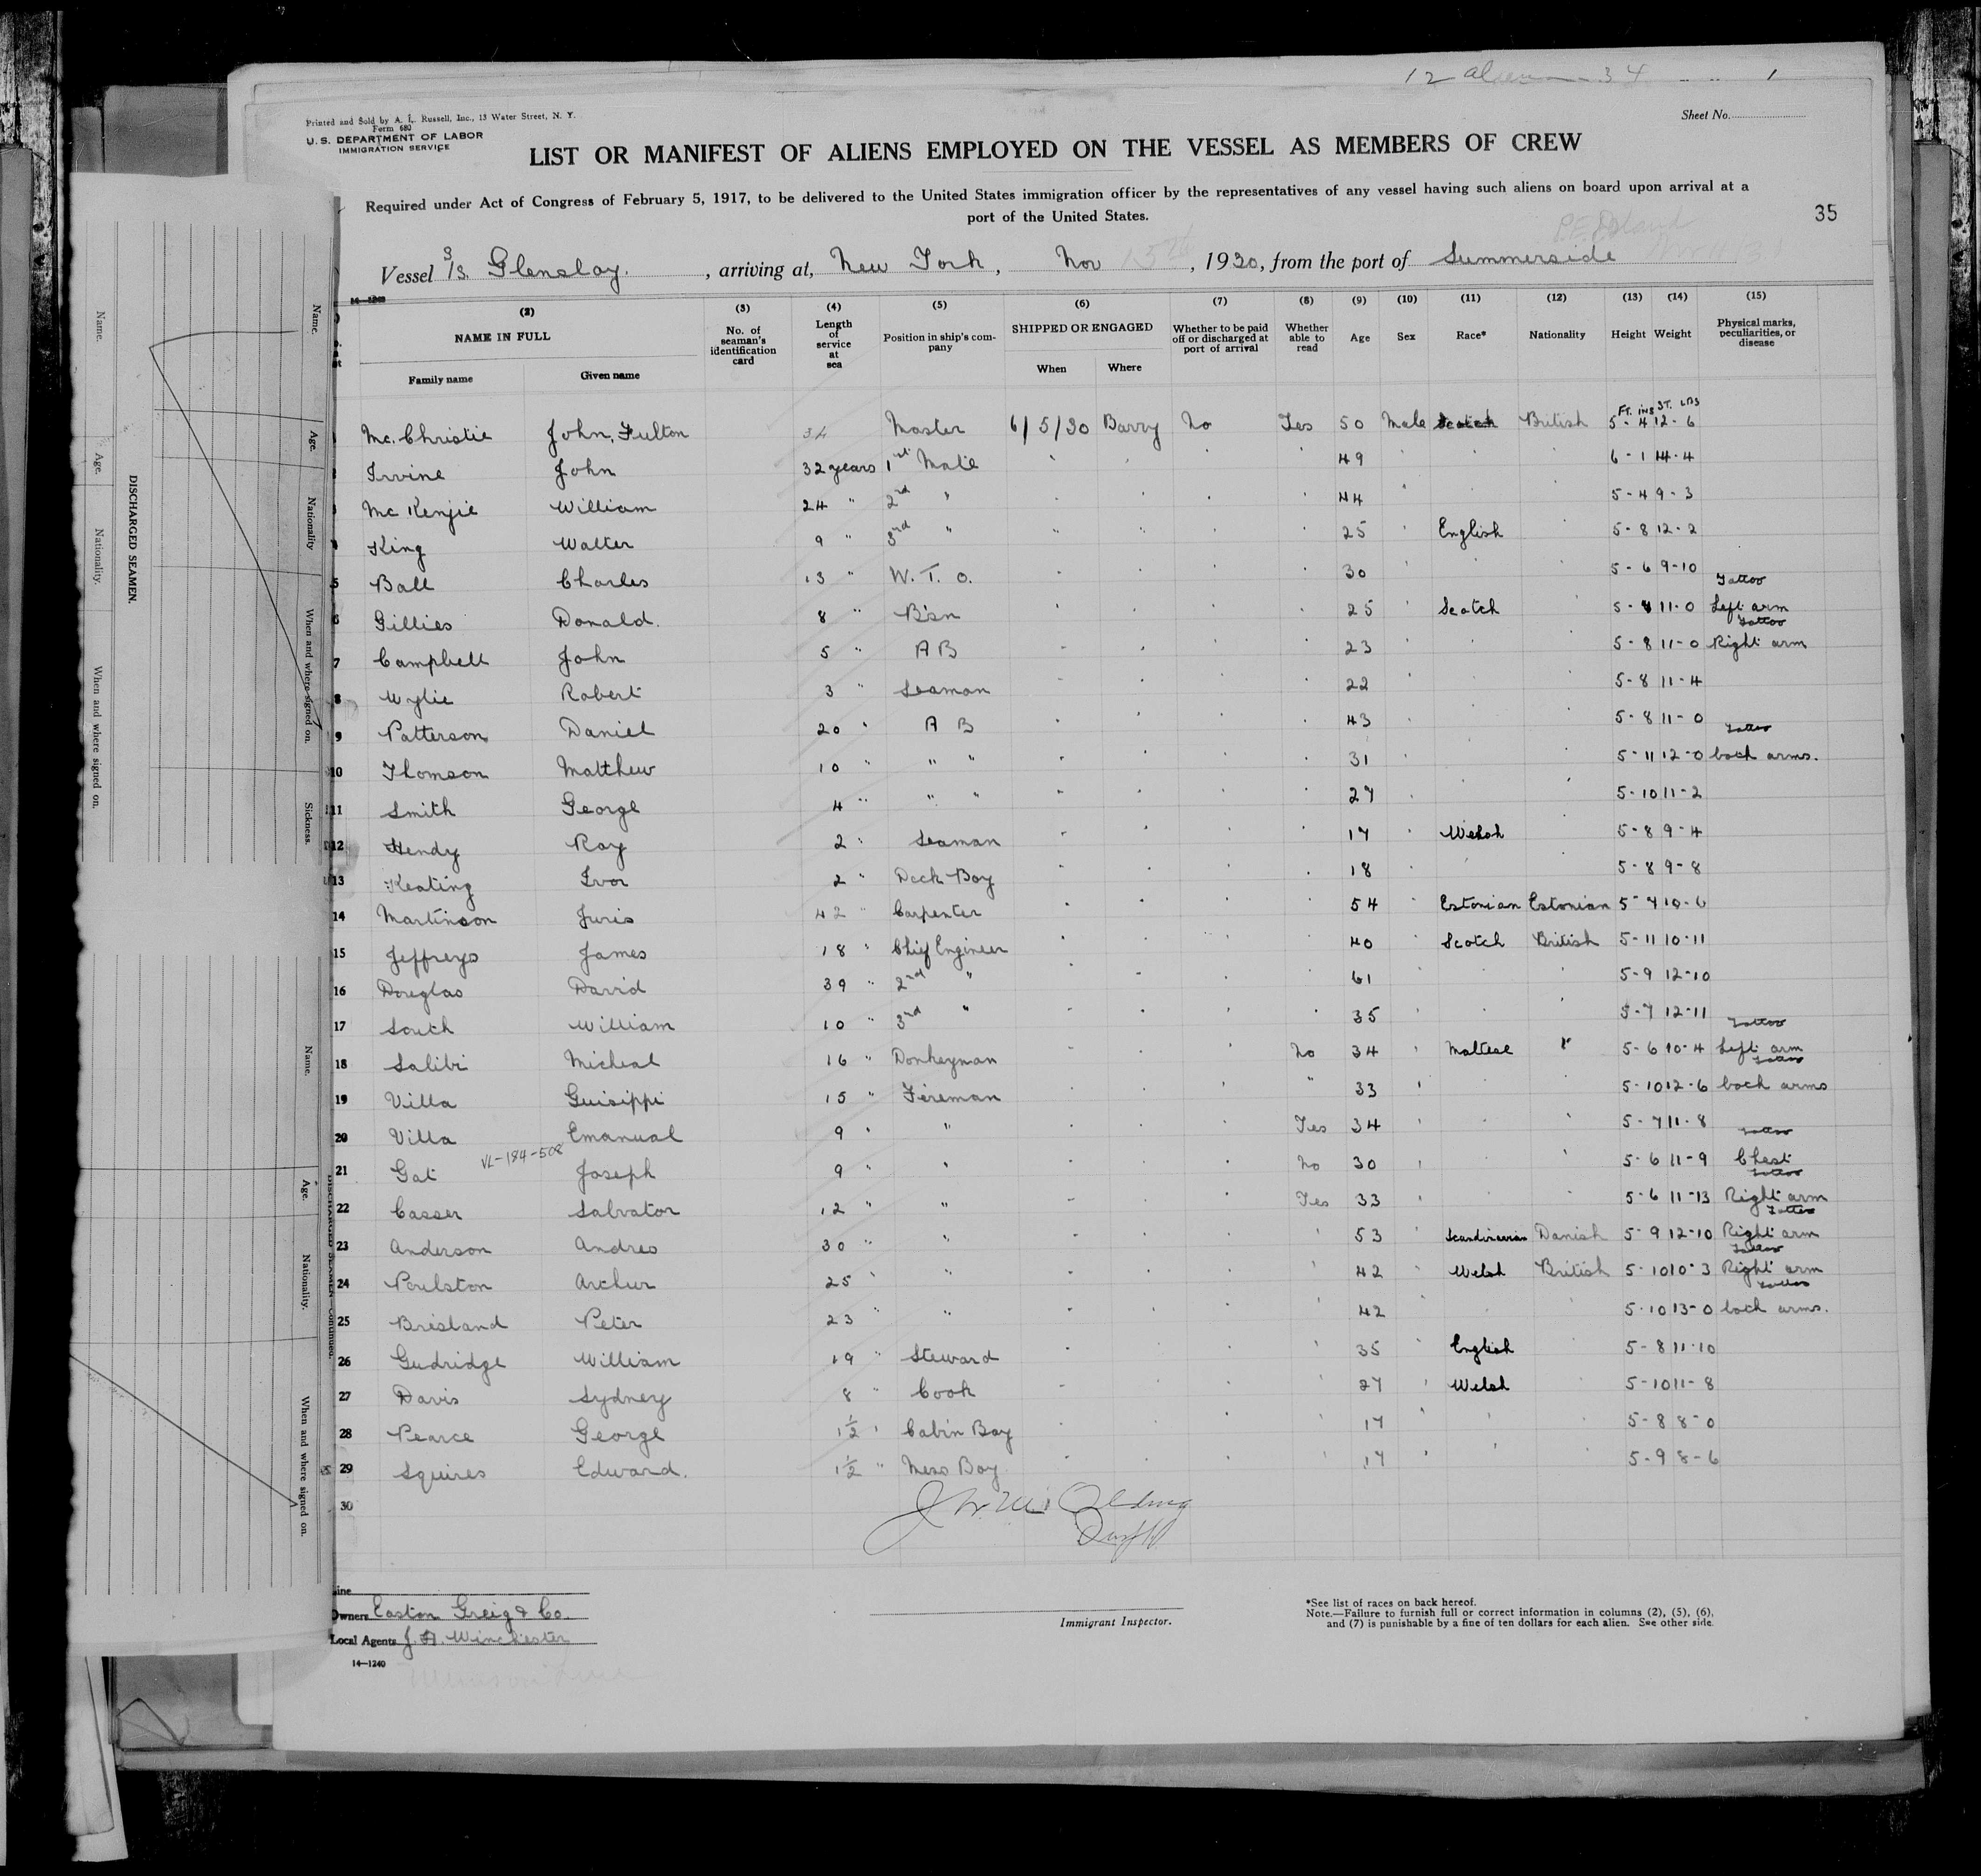 12 Aliens 34 1
Printed and Sold by A. L. Russell, Inc., 13 Water Street, N. Y.
Form 680
U. S. DEPARTMENT OF LABOR
IMMIGRATION SERVICE
Sheet No.
LIST OR MANIFEST OF ALIENS EMPLOYED ON THE VESSEL AS MEMBERS OF CREW
Required under Act of Congress of February 5, 1917, to be delivered to the United States immigration officer by the representatives of any vessel having such aliens on board upon arrival at a
port of the United States.
35
P.E. Island
Vessel S/S. Glensloy, arriving at, New York, Nov 15th, 1930, from the port of Summerside
14—1240
(2) (3) (4) (5) (6) (7) (8) (9) (10) (11) (12) (13) (14) (15)
NAME IN FULL
Family name Given name
No. of seaman's identification card
Length of service at sea
Position in ship's company
SHIPPED OR ENGAGED
When Where
Whether to be paid off or discharged at port of arrival
Whether able to read
Age
Sex
Race*
Nationality
Height
Weight
Physical marks, peculiarities, or disease
FT. INS ST. LBS
Mc. Christie John, Fulton 34 Master 6/5/30 Barry No Yes 50 Male Scotch British 5-4 12-6
Irvine John 32 years 1st Mate 49 6-1 14-4
Mc Kenzie William 24 " 2nd " 44 5-4 9-3
King Walter 9 " 3rd " 25 English 5-8 12-2
5 Ball Charles 13 " W. T. O. 30 5-6 9-10
6 Gillies Donald. 8 " B'sn 25 Scotch 5-8 11-0 Tattoo Left arm
7 Campbell John 5 " A B 23 5-8 11-0 Tattoo Right arm
8 Wylie Robert 3 " Seaman 22 5-8 11-4
9 Patterson Daniel 20 " A B 43 5-8 11-0
10 Thomson Matthew 10 " " " 31 5-11 12-0 Tattoo both arms.
11 Smith George 4 " " " 27 5-10 11-2
12 Hendy Roy 2 " Seaman 17 Welsh 5-8 9-4
13 Keating Ivor 2 " Deck Boy 18 5-8 9-8
14 Martinson Juris 42 " Carpenter 54 Estonian Estonian 5-7 10-6
15 Jeffreys James 18 " Chief Engineer 40 Scotch British 5-11 10-11
16 Douglas David 39 " 2nd " 61 5-9 12-10
17 South William 10 " 3rd " 35 5-7 12-11
18 Salibi Micheal 16 " Donkeyman No 34 Maltese " 5-6 10-4 Tattoo Left arm
19 Villa Guisippi 15 " Fireman " 33 5-10 12-6 Tattoo both arms
20 Villa Emanual 9 " " Yes 34 5-7 11-8
VL-184-508
21 Gat Joseph 9 " " No 30 5-6 11-9 Tattoo Chest
22 Casser Salvator 12 " " Yes 33 5-6 11-13 Tattoo Right arm
23 Anderson Andres 30 " " 53 Scandinavian Danish 5-9 12-10 Tattoo Right arm
24 Poulston Arthur 25 " " 42 Welsh British 5-10 10-3 Tattoo Right arm
25 Bresland Peter 23 " " 42 5-10 13-0 Tattoo both arms.
26 Gudridge William 19 " Steward 35 English 5-8 11-10
27 Davis Sydney 8 " Cook 27 Welsh 5-10 11-8
28 Pearce George 1½ " Cabin Boy 17 5-8 8-0
29 Squires Edward. 1½ " Mess Boy 17 5-9 8-6
30
Line
Owners Easton Greig & Co.
Local Agents J. A. Winchester
14—1240
Immigrant Inspector.
*See list of races on back hereof.
Note.—Failure to furnish full or correct information in columns (2), (5), (6),
and (7) is punishable by a fine of ten dollars for each alien. See other side.
DISCHARGED SEAMEN.
Name.
Age.
Nationality.
When and where signed on.
Name.
Age.
Nationality
When and where signed on.
Sickness.
DISCHARGED SEAMEN—Continued.
Name.
Age.
Nationality.
When and where signed on.